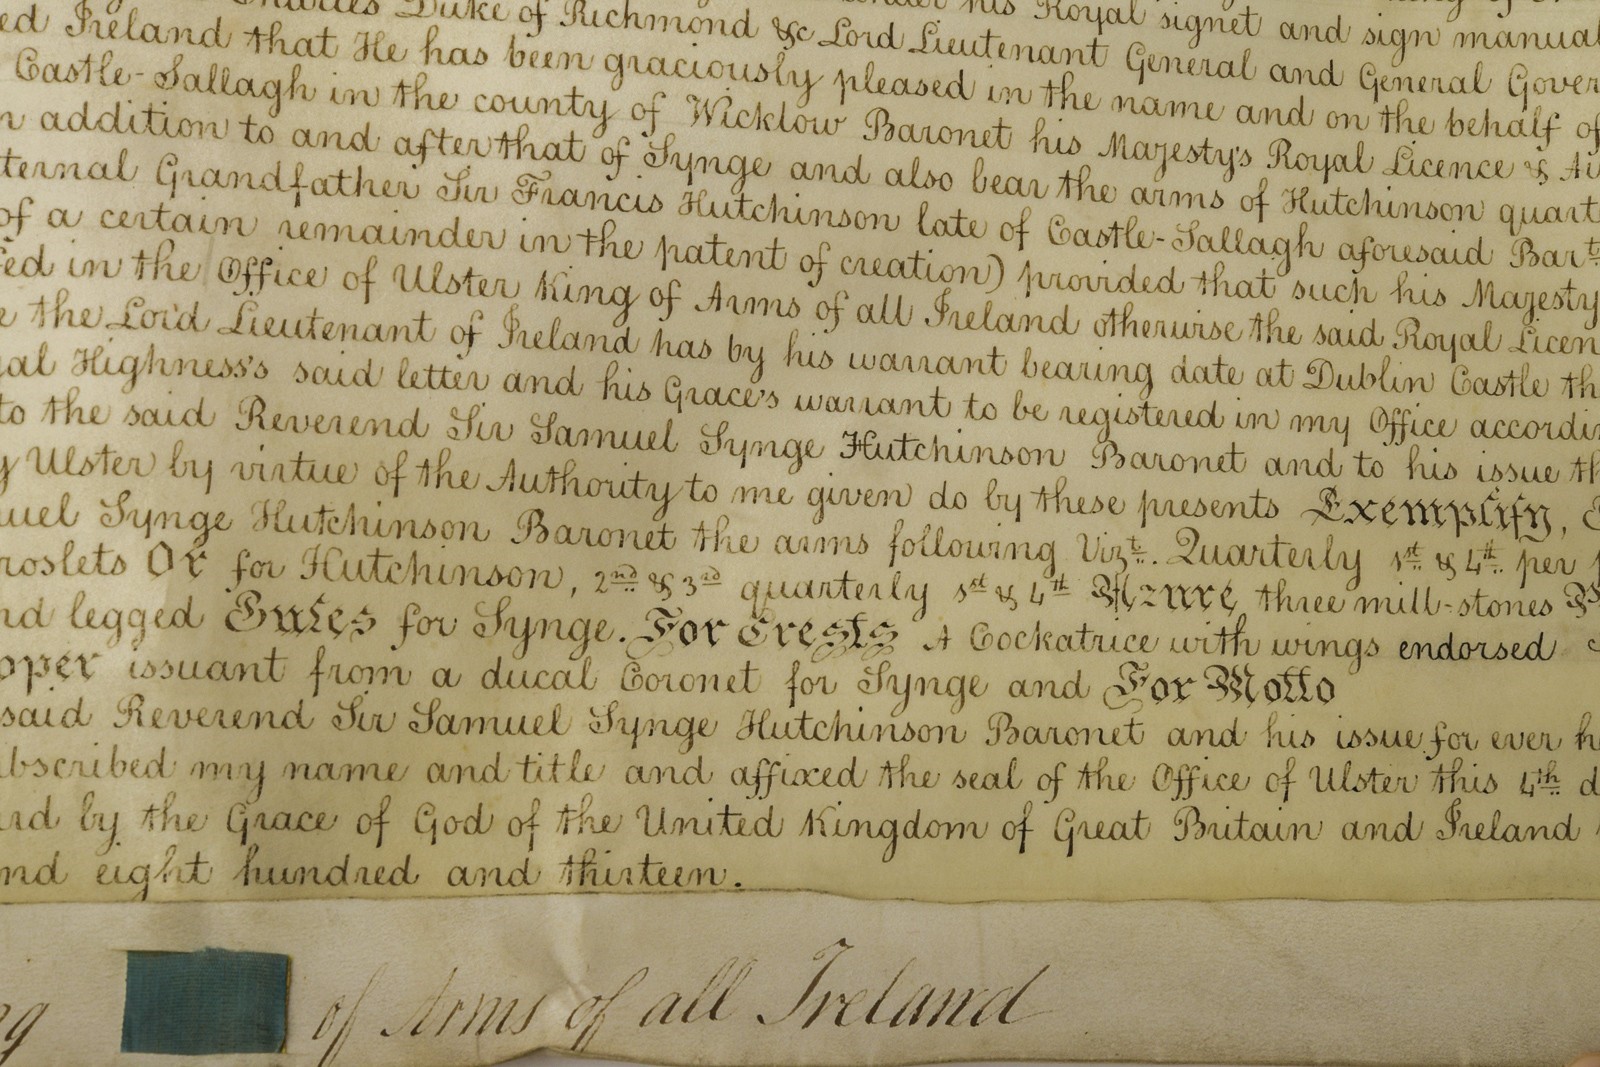 Charles Duke of Richmond &c Lord Lieutenant General and General Gover
ed Ireland that He has been graciously pleased in the name and on the behalf of
Castle-Sallagh in the county of Wicklow Baronet his Majesty's Royal Licence & Au
n addition to and after that of Synge and also bear the arms of Hutchinson quart
ternal Grandfather Sir Francis Hutchinson late of Castle-Sallagh aforesaid Bart
of a certain remainder in the patent of creation) provided that such his Majesty
ed in the Office of Ulster King of Arms of all Ireland otherwise the said Royal Licen
e the Lord Lieutenant of Ireland has by his warrant bearing date at Dublin Castle th
yal Highness's said letter and his Grace's warrant to be registered in my Office accordin
to the said Reverend Sir Samuel Synge Hutchinson Baronet and to his issue th
y Ulster by virtue of the Authority to me given do by these presents Exemplify,
uel Synge Hutchinson Baronet the arms following Vizt. Quarterly 1st & 4th per p
roslets Or for Hutchinson, 2nd & 3rd quarterly 1st & 4th Azure, three mill-stones
nd legged Gules for Synge. For Crests A Cockatrice with wings endorsed
oper issuant from a ducal Coronet for Synge and For Motto
said Reverend Sir Samuel Synge Hutchinson Baronet and his issue for ever h
ubscribed my name and title and affixed the seal of the Office of Ulster this 4th d
ird by the Grace of God of the United Kingdom of Great Britain and Ireland
nd eight hundred and thirteen.
ng of Arms of all Ireland